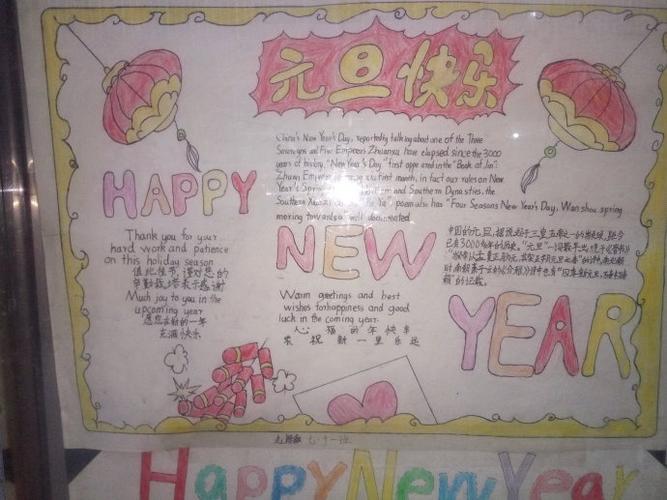 元旦快乐
China's New Year's Day, reportedly talking about one of the Three
Sovereigns and Five Emperors Zhuanxu, have elapsed since the 3000
years of history, "New Year's Day" first appeared in the "Book of Jin":
month, in fact our rules on New
and Southern Dynasties, the
Southern poem also has "Four Seasons New Year's Day, Wan shou spring
morning towards documented.
HAPPY
NEW
YEAR
Thank you for your
hard work and patience
on this holiday season
值此佳节,谨对您的
辛勤栽培表示感谢
Much joy to you in the
upcoming year
愿您在新的一年
充满快乐
Warm greetings and best
wishes for happiness and good
luck in the coming year.
中国的元旦,据传说起于三皇五帝之一的颛顼,距今
已有3000多年的历史。"元旦"一词最早出现于《晋书》
的记载。
七·十一班
Happy New Year